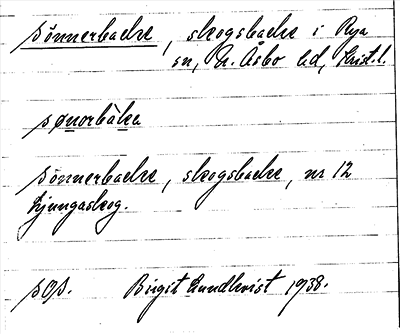 Sönnerbacke, skogsbacke i Rya
sn, N. Åsbo hd, Krist. l.
sønorbàka
Sönnerbacke, skogsbacke, nr 12
Ljungaskog.
SOP. Birgit Lundkvist 1938.